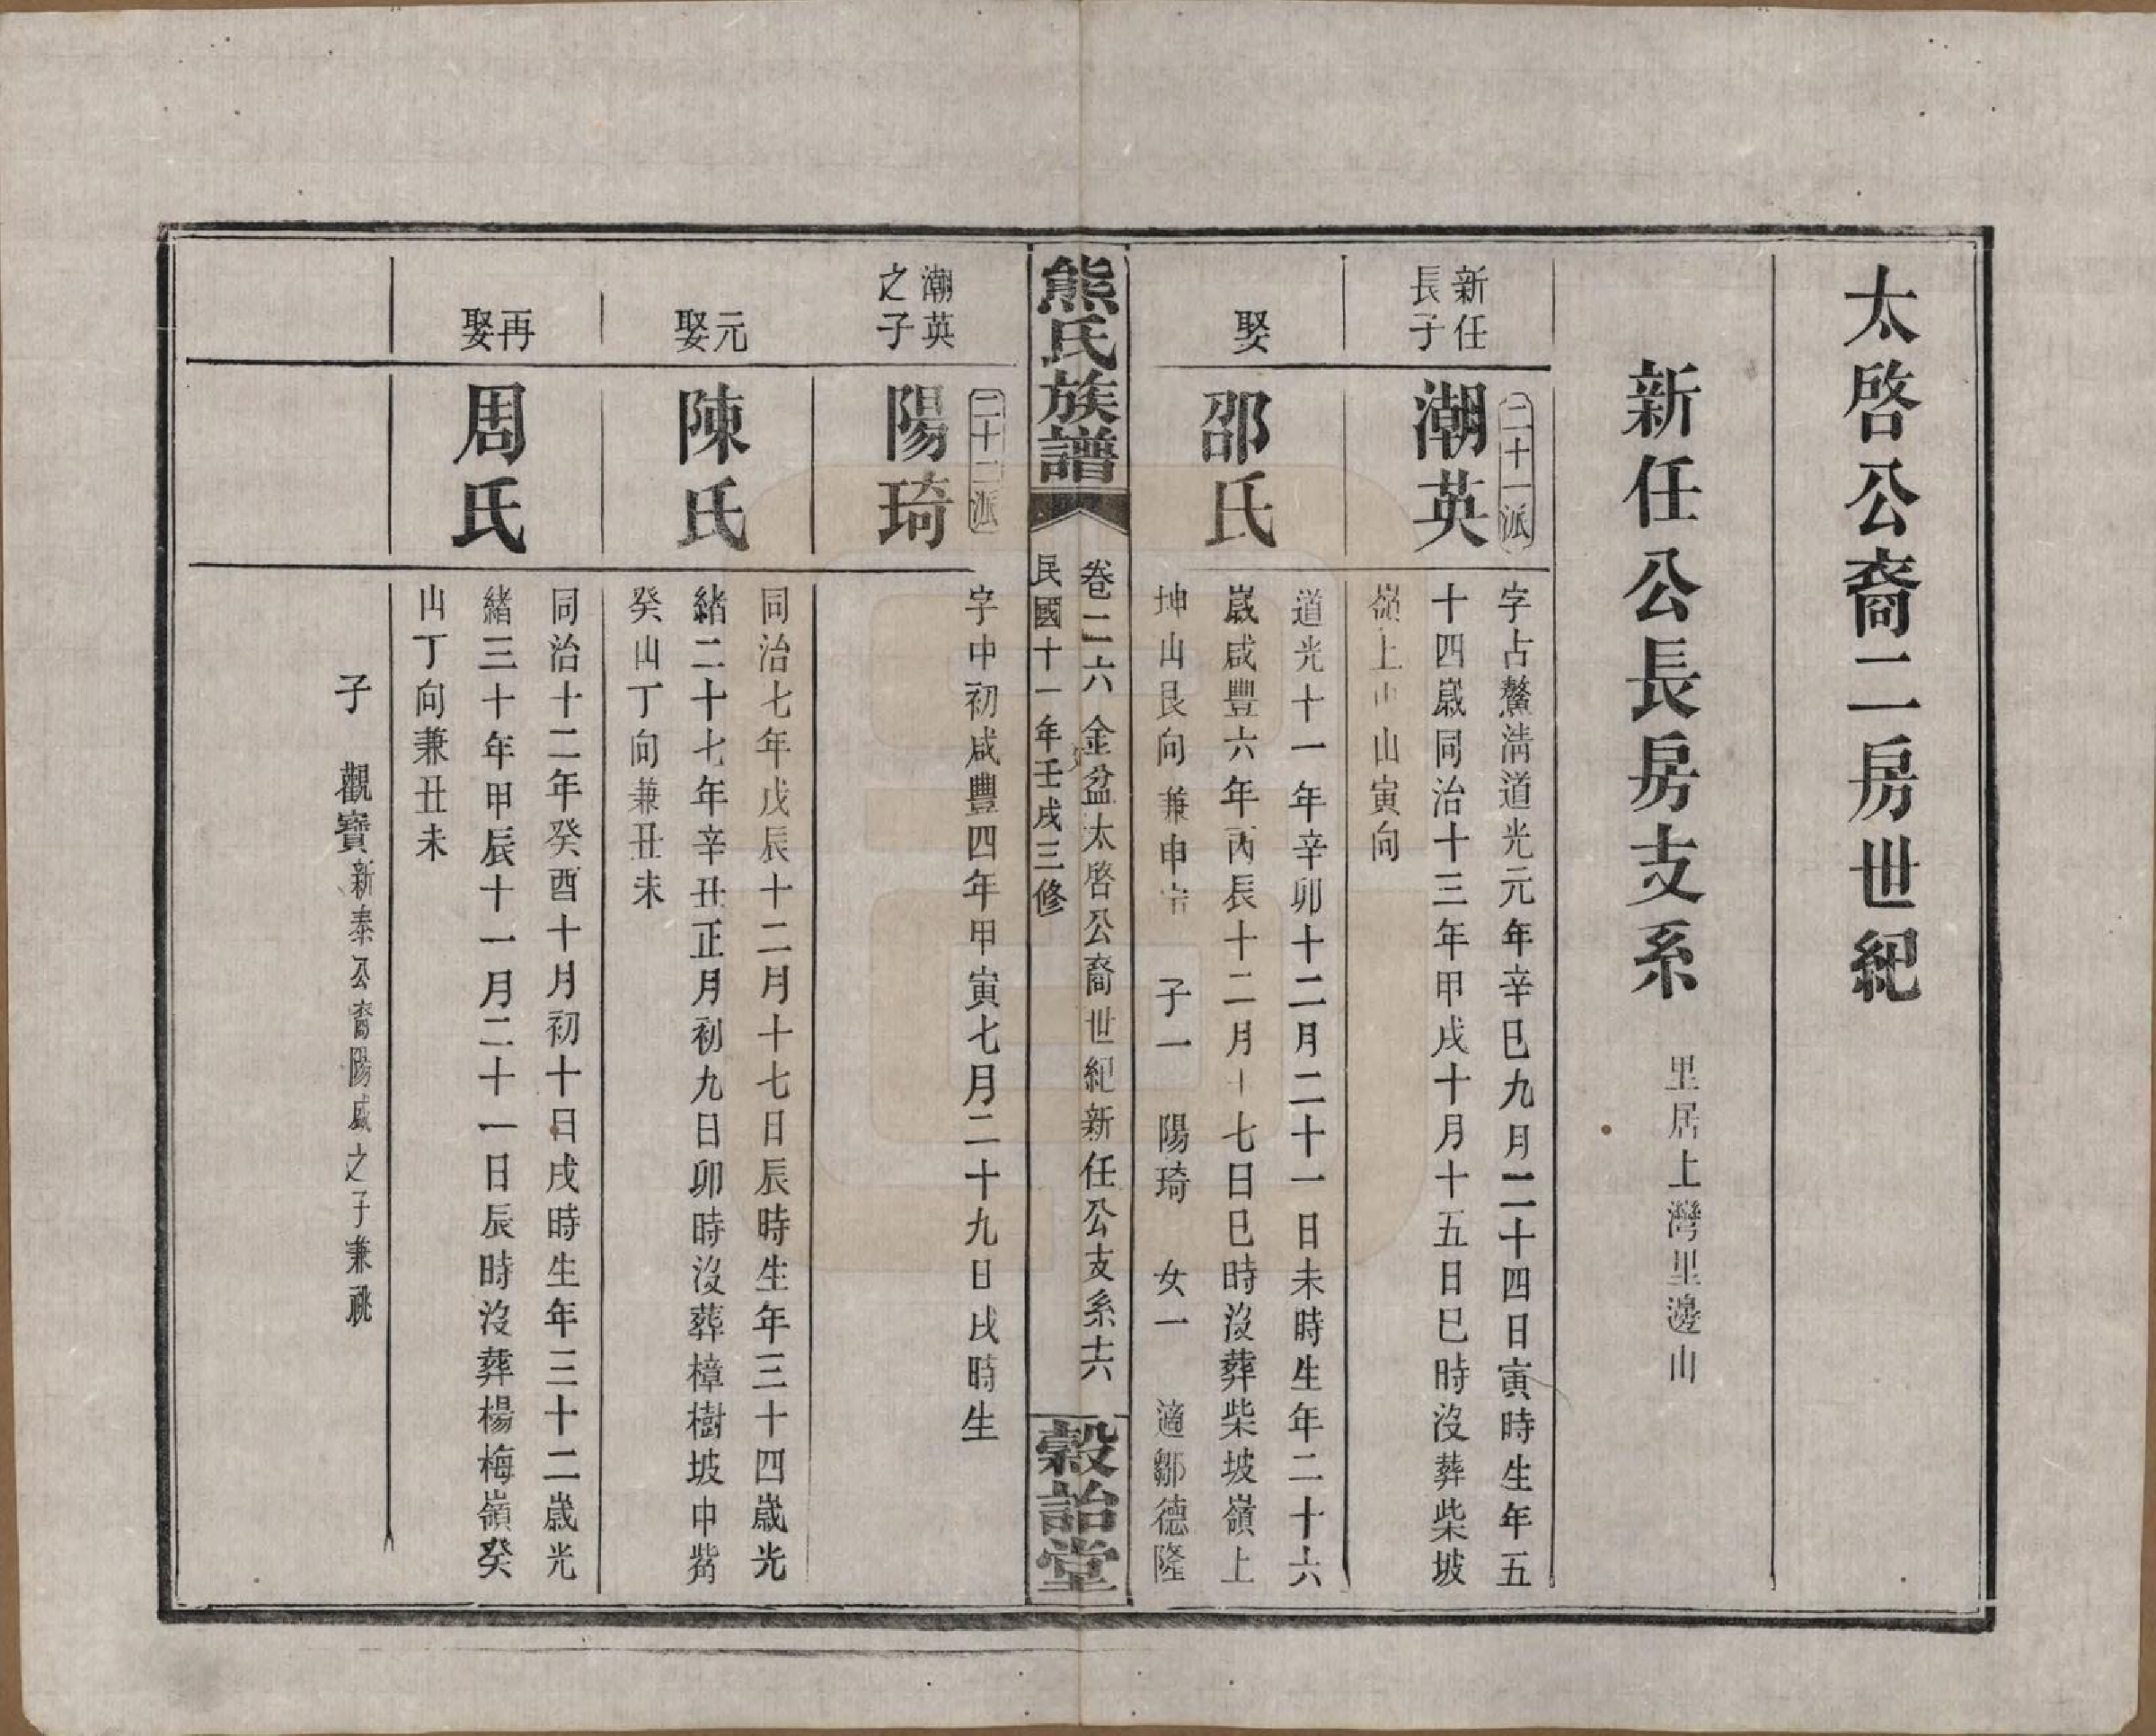 太啓公裔二房世紀
新任公長房支系
里居上灣里邊山
新任
長子
二十一派
潮英
字占鰲淸道光元年辛巳九月二十四日寅時生年五
十四歲同治十三年甲戌十月十五日巳時沒葬柴坡
嶺上山山寅向
娶
邵氏
道光十一年辛卯十二月二十一日未時生年二十六
歲咸豐六年丙辰十二月十七日巳時沒葬柴坡嶺上
坤山艮向兼申 子一 陽琦 女一 適鄒德隆
熊氏族譜
卷二六 金盆太啓公裔世紀新任公支系 十六
民國十一年壬戌三修
穀詒堂
潮英
之子
二十二派
陽琦
字中初咸豐四年甲寅七月二十九日戌時生
元
娶
陳氏
同治七年戊辰十二月十七日辰時生年三十四歲光
緒二十七年辛丑正月初九日卯時沒葬樟樹坡中嘴
癸山丁向兼丑未
再
娶
周氏
同治十二年癸酉十月初十日戌時生年三十二歲光
緒三十年甲辰十一月二十一日辰時沒葬楊梅嶺癸
山丁向兼丑未
子 觀寶新泰公裔陽咸之子兼祧